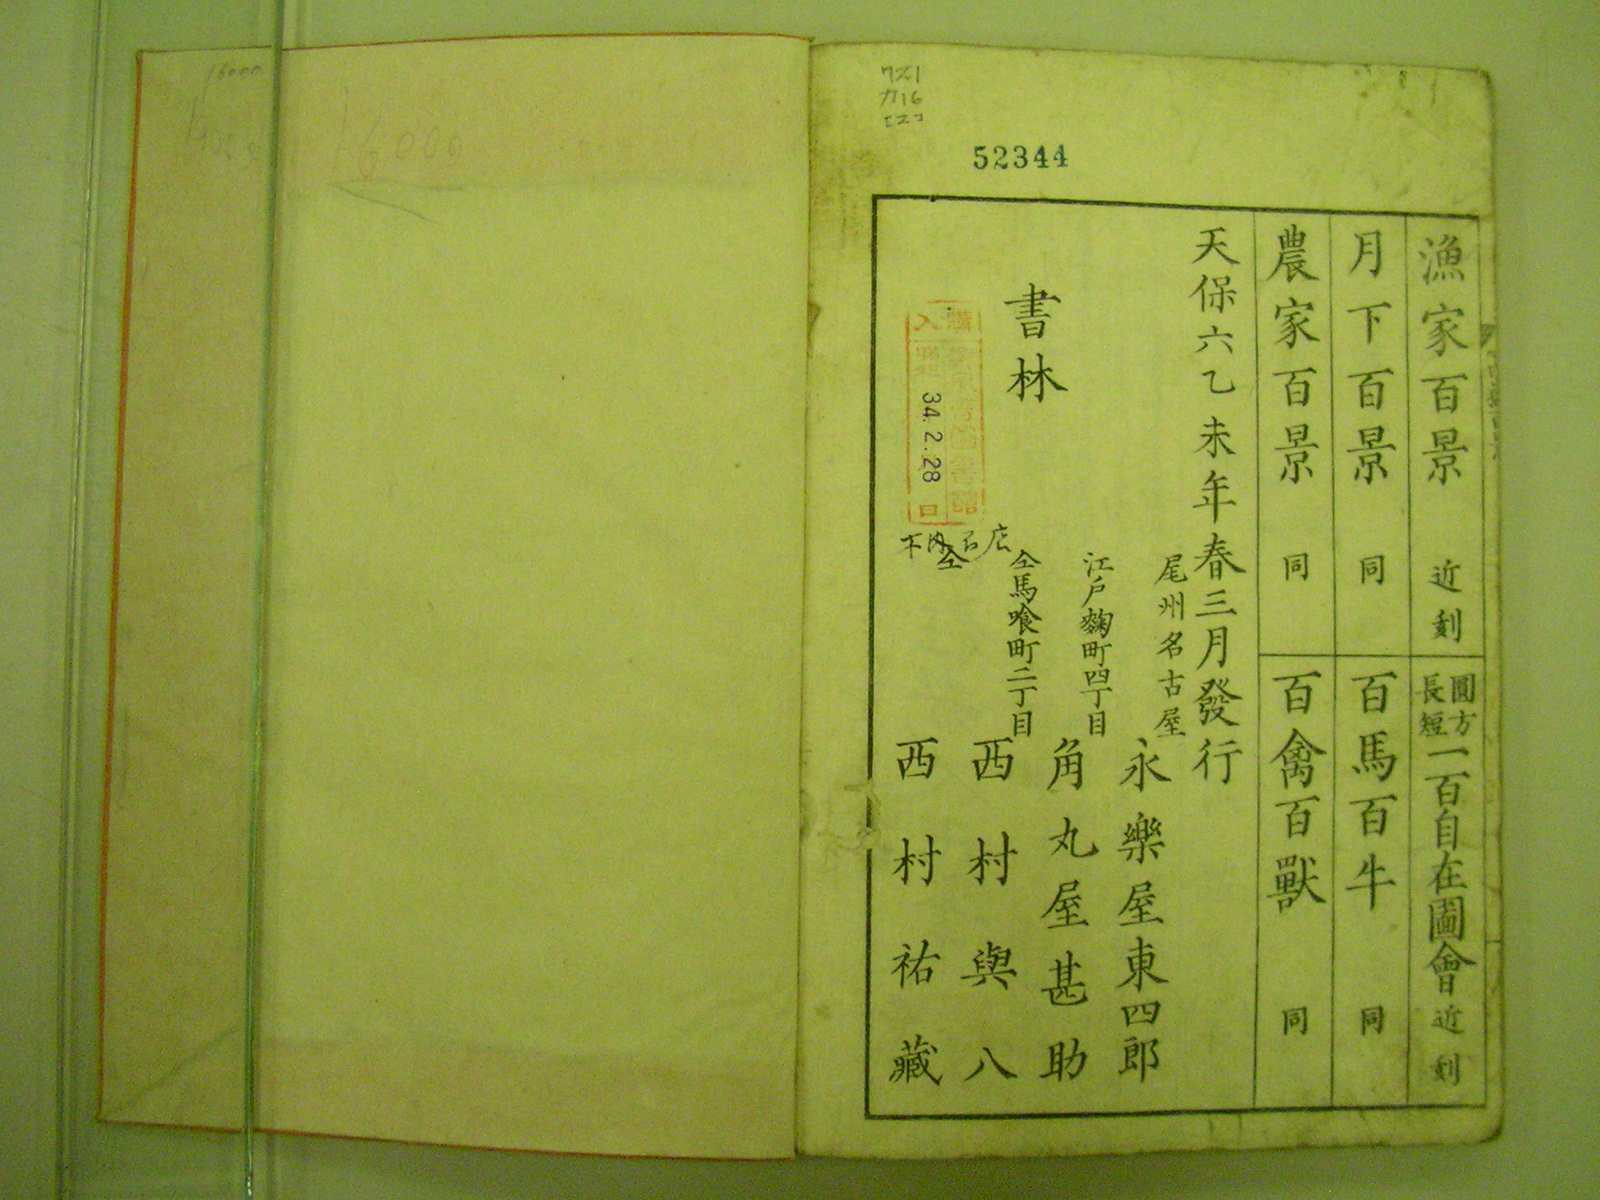 52344
漁家百景 近刻
圓方長短一百自在圖會 近刻
月下百景 同
百馬百牛 同
農家百景 同
百禽百獸 同
天保六乙未年春三月發行
書林
尾州名古屋
永樂屋東四郎
江戸麹町四丁目
角丸屋甚助
仝馬喰町二丁目
西村與八
仝
西村祐藏
購入
34.2.28
16000
16000